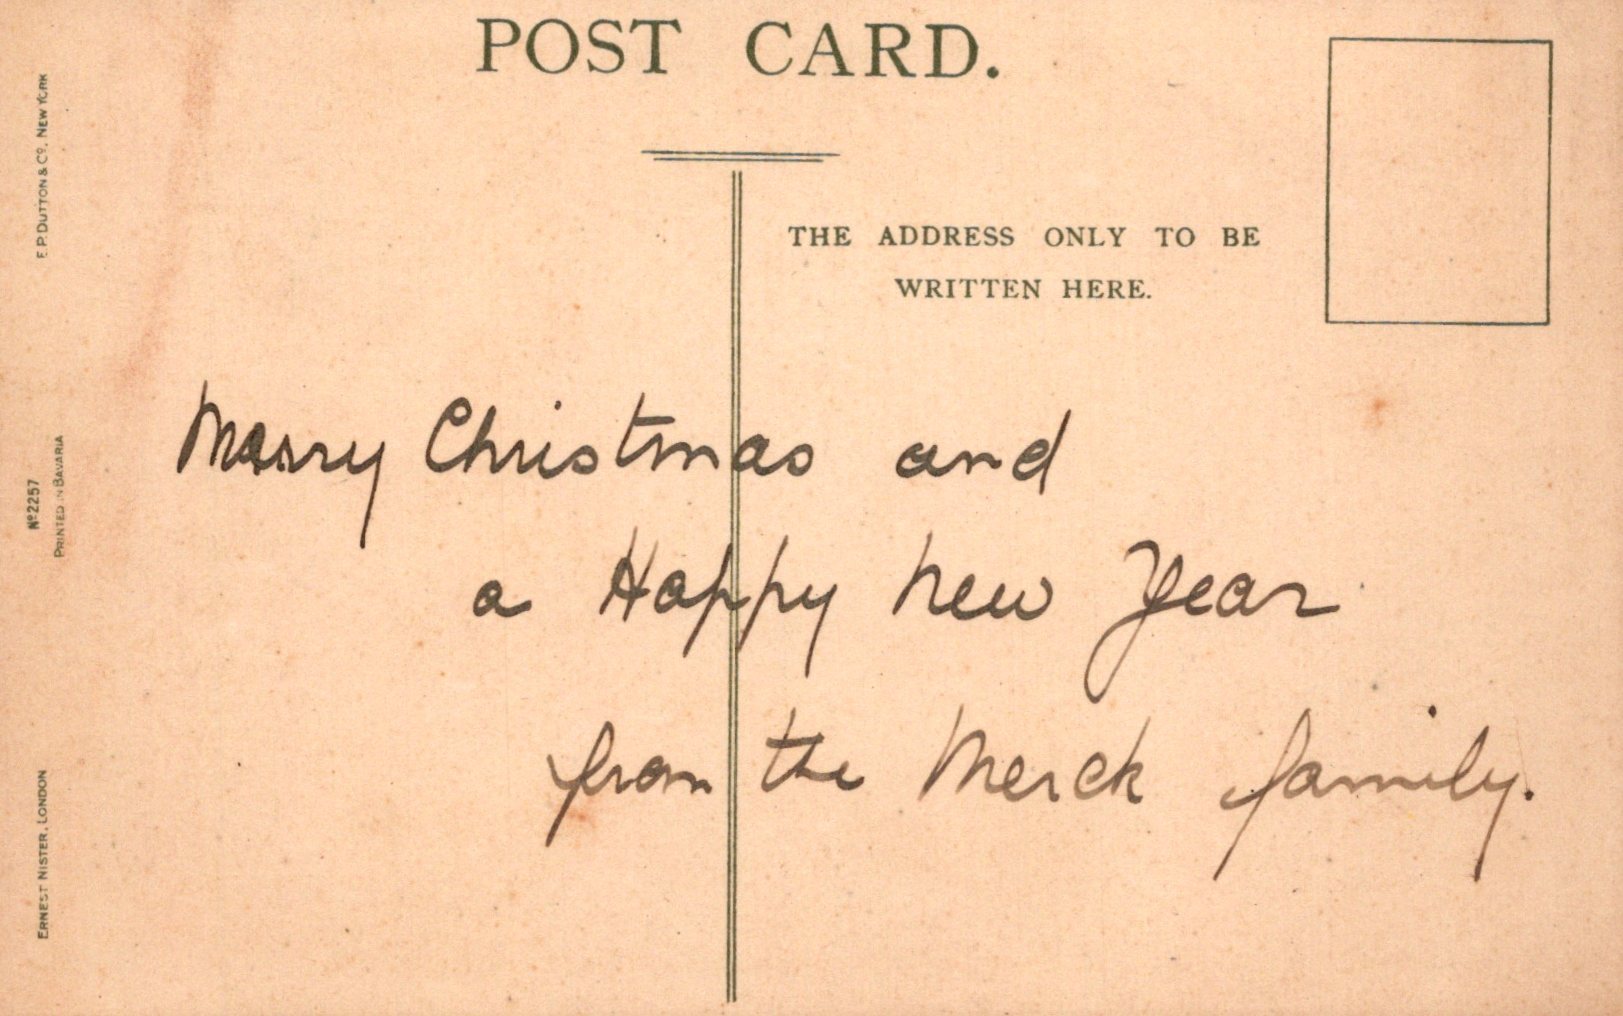 POST CARD.
THE ADDRESS ONLY TO BE
WRITTEN HERE.
Marry Christmas and
a Happy New Year
from the Merck family.
E.P. DUTTON & Co., NEW YORK
No 2257
PRINTED IN BAVARIA
ERNEST NISTER, LONDON